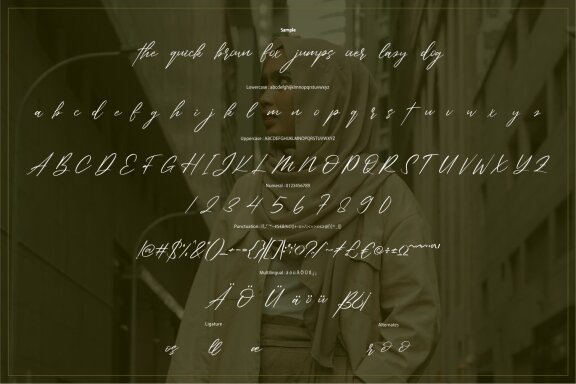 Sample
the quick brown fox jumps over lazy dog
Lowercase : abcdefghijklmnopqrstuvwxyz
a b c d e f g h i j h l m n o p q r s t u v w x y z
Uppercase : ABCDEFGHIJKLMNOPQRSTUVWXYZ
A B C D E F G H I J K L M N O P Q R S T U V W X Y Z
Numeral : 0123456789
1 2 3 4 5 6 7 8 9 0
Punctuation :
Multilingual : ä ö ü Ä Ö Ü ß ¿ ¡
Ä Ö Ü ä ï ü ß¿¡
Ligature Alternates
os ll